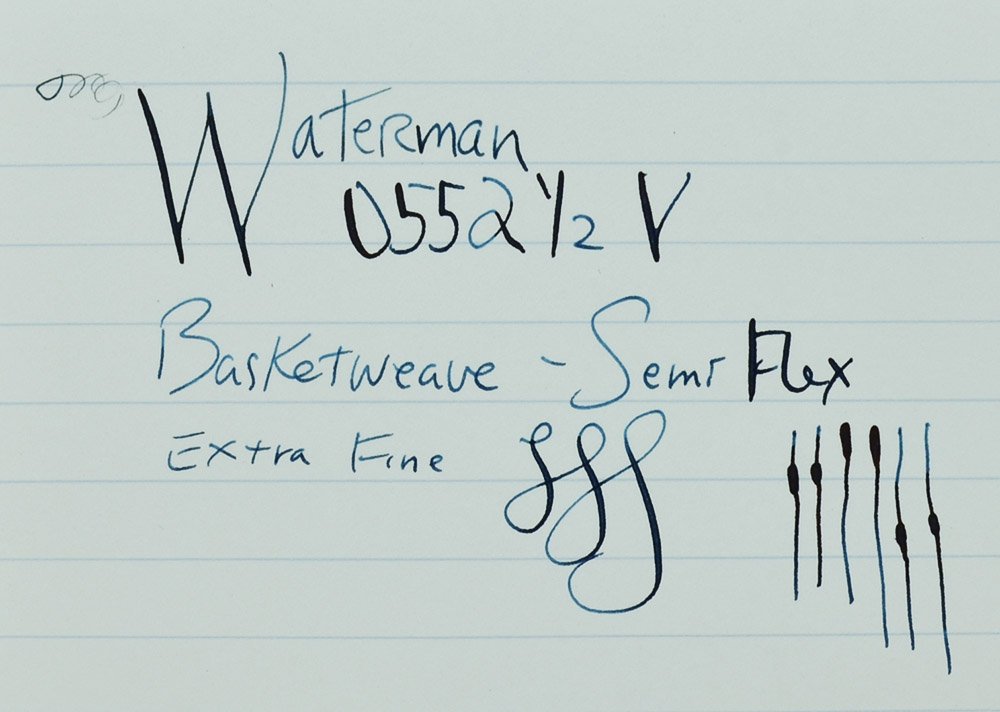 Waterman
0552 1/2 V
Basketweave - Semi Flex
Extra Fine